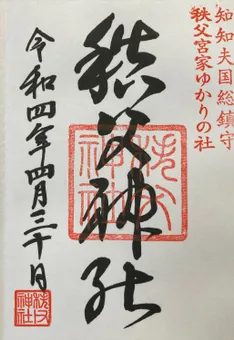 知知夫国総鎮守
秩父宮家ゆかりの社
秩父神社
秩父神社
令和四年四月三十日
秩父神社